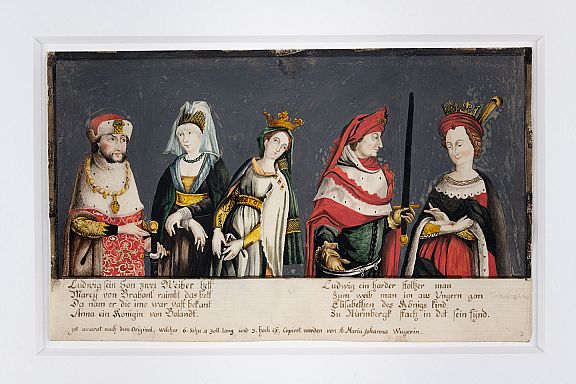 Ludwig sein Son zwei Weiber hett
Marey von Brabant raumbt das bett
Da nam er die ime war vast bekant
Anna ein Konigin von Bolandt.
Ludwig ein harder stolher man
Zum weib man im aus Ungern gan
Elisabethen des Königs kind
Zu Nürmbergk stach in dot sein
ist accurat nach dem Original, welches 6. Schu 4 Zoll lang und 3. hoch ist, Copirt worden von A. Maria Johanna Wugerin.